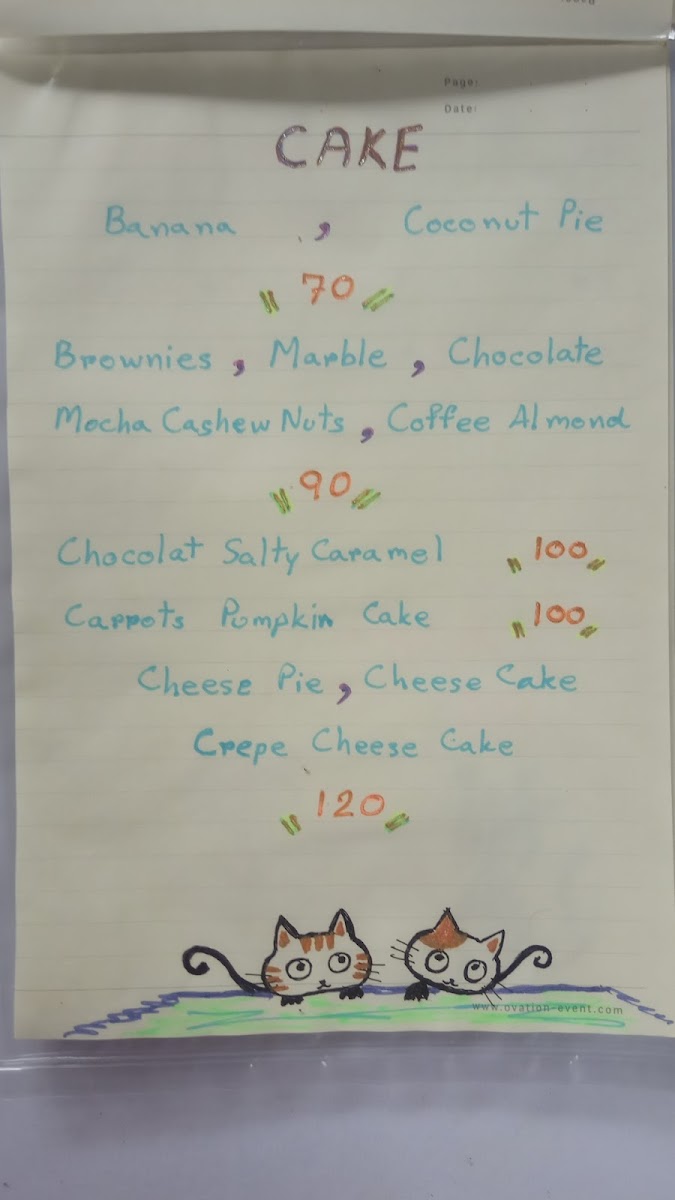 Page:
Date:
CAKE
Banana , Coconut Pie
70
Brownies , Marble , Chocolate
Mocha Cashew Nuts , Coffee Almond
90
Chocolat Salty Caramel 100
Carrots Pumpkin Cake 100
Cheese Pie , Cheese Cake
Crepe Cheese Cake
120
www.ovation-event.com